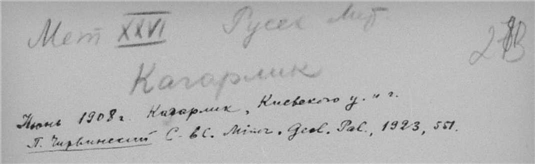 Мет XXVI Русск Мет.
28
Кагарлик
Июнь 1908 г. Кагарлик, Киевского у. и г.
П. Чирвинский C.bl. Miner. Geol. Pal., 1923, 551.